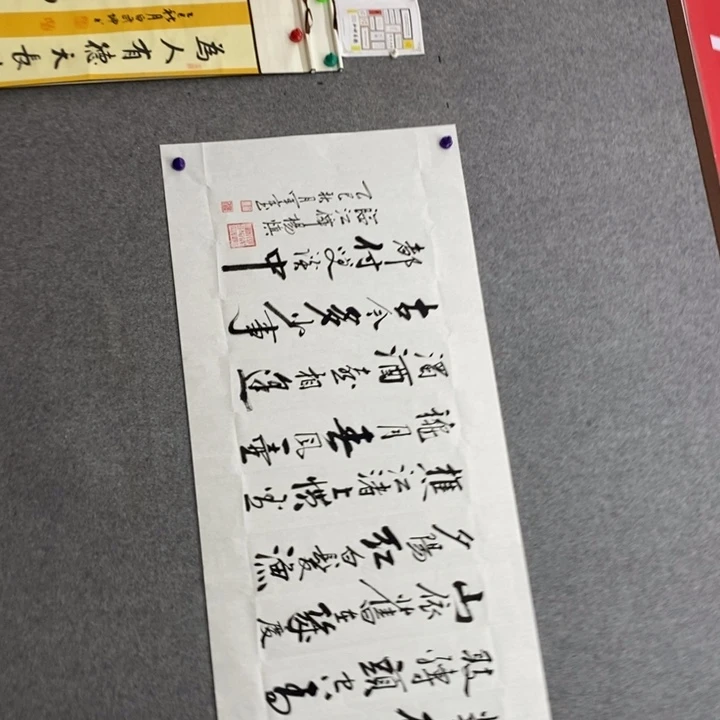 為人有德天長
敗轉頭空青
山依舊在幾度
夕陽紅白髮漁
樵江渚上慣看
龝月春風一壺
濁酒喜相逢
古今多少事
都付笑談中
臨江僊 楊慎
乙巳秋月